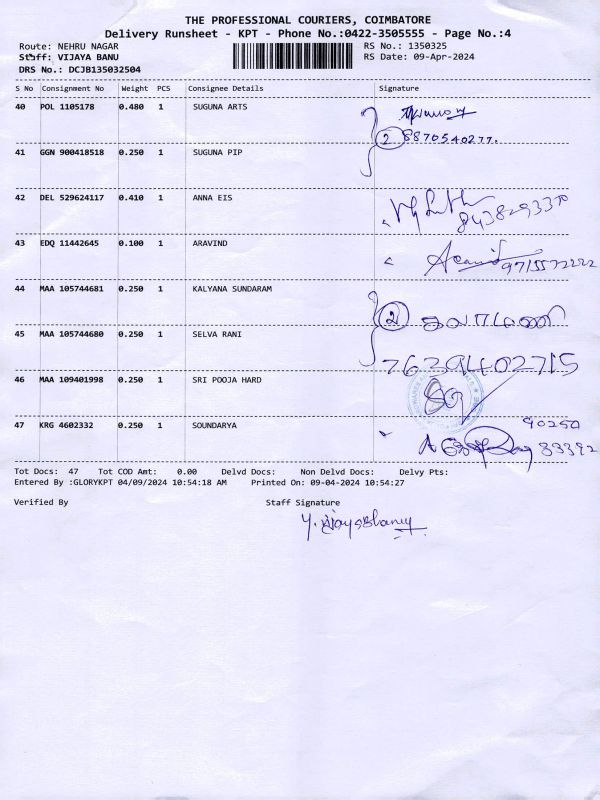 THE PROFESSIONAL COURIERS, COIMBATORE
Delivery Runsheet - KPT - Phone No.:0422-3505555 - Page No.:4
Route: NEHRU NAGAR RS No.: 1350325
Staff: VIJAYA BANU RS Date: 09-Apr-2024
DRS No.: DCJB135032504
S No Consignment No Weight PCS Consignee Details Signature
40 POL 1105178 0.480 1 SUGUNA ARTS
2 8870540277.
41 GGN 900418518 0.250 1 SUGUNA PIP
42 DEL 529624117 0.410 1 ANNA EIS
43 EDQ 11442645 0.100 1 ARAVIND
44 MAA 105744681 0.250 1 KALYANA SUNDARAM
2
45 MAA 105744680 0.250 1 SELVA RANI
46 MAA 109401998 0.250 1 SRI POOJA HARD
47 KRG 4602332 0.250 1 SOUNDARYA
90250
Tot Docs: 47 Tot COD Amt: 0.00 Delvd Docs: Non Delvd Docs: Delvy Pts:
Entered By :GLORYKPT 04/09/2024 10:54:18 AM Printed On: 09-04-2024 10:54:27
Verified By Staff Signature